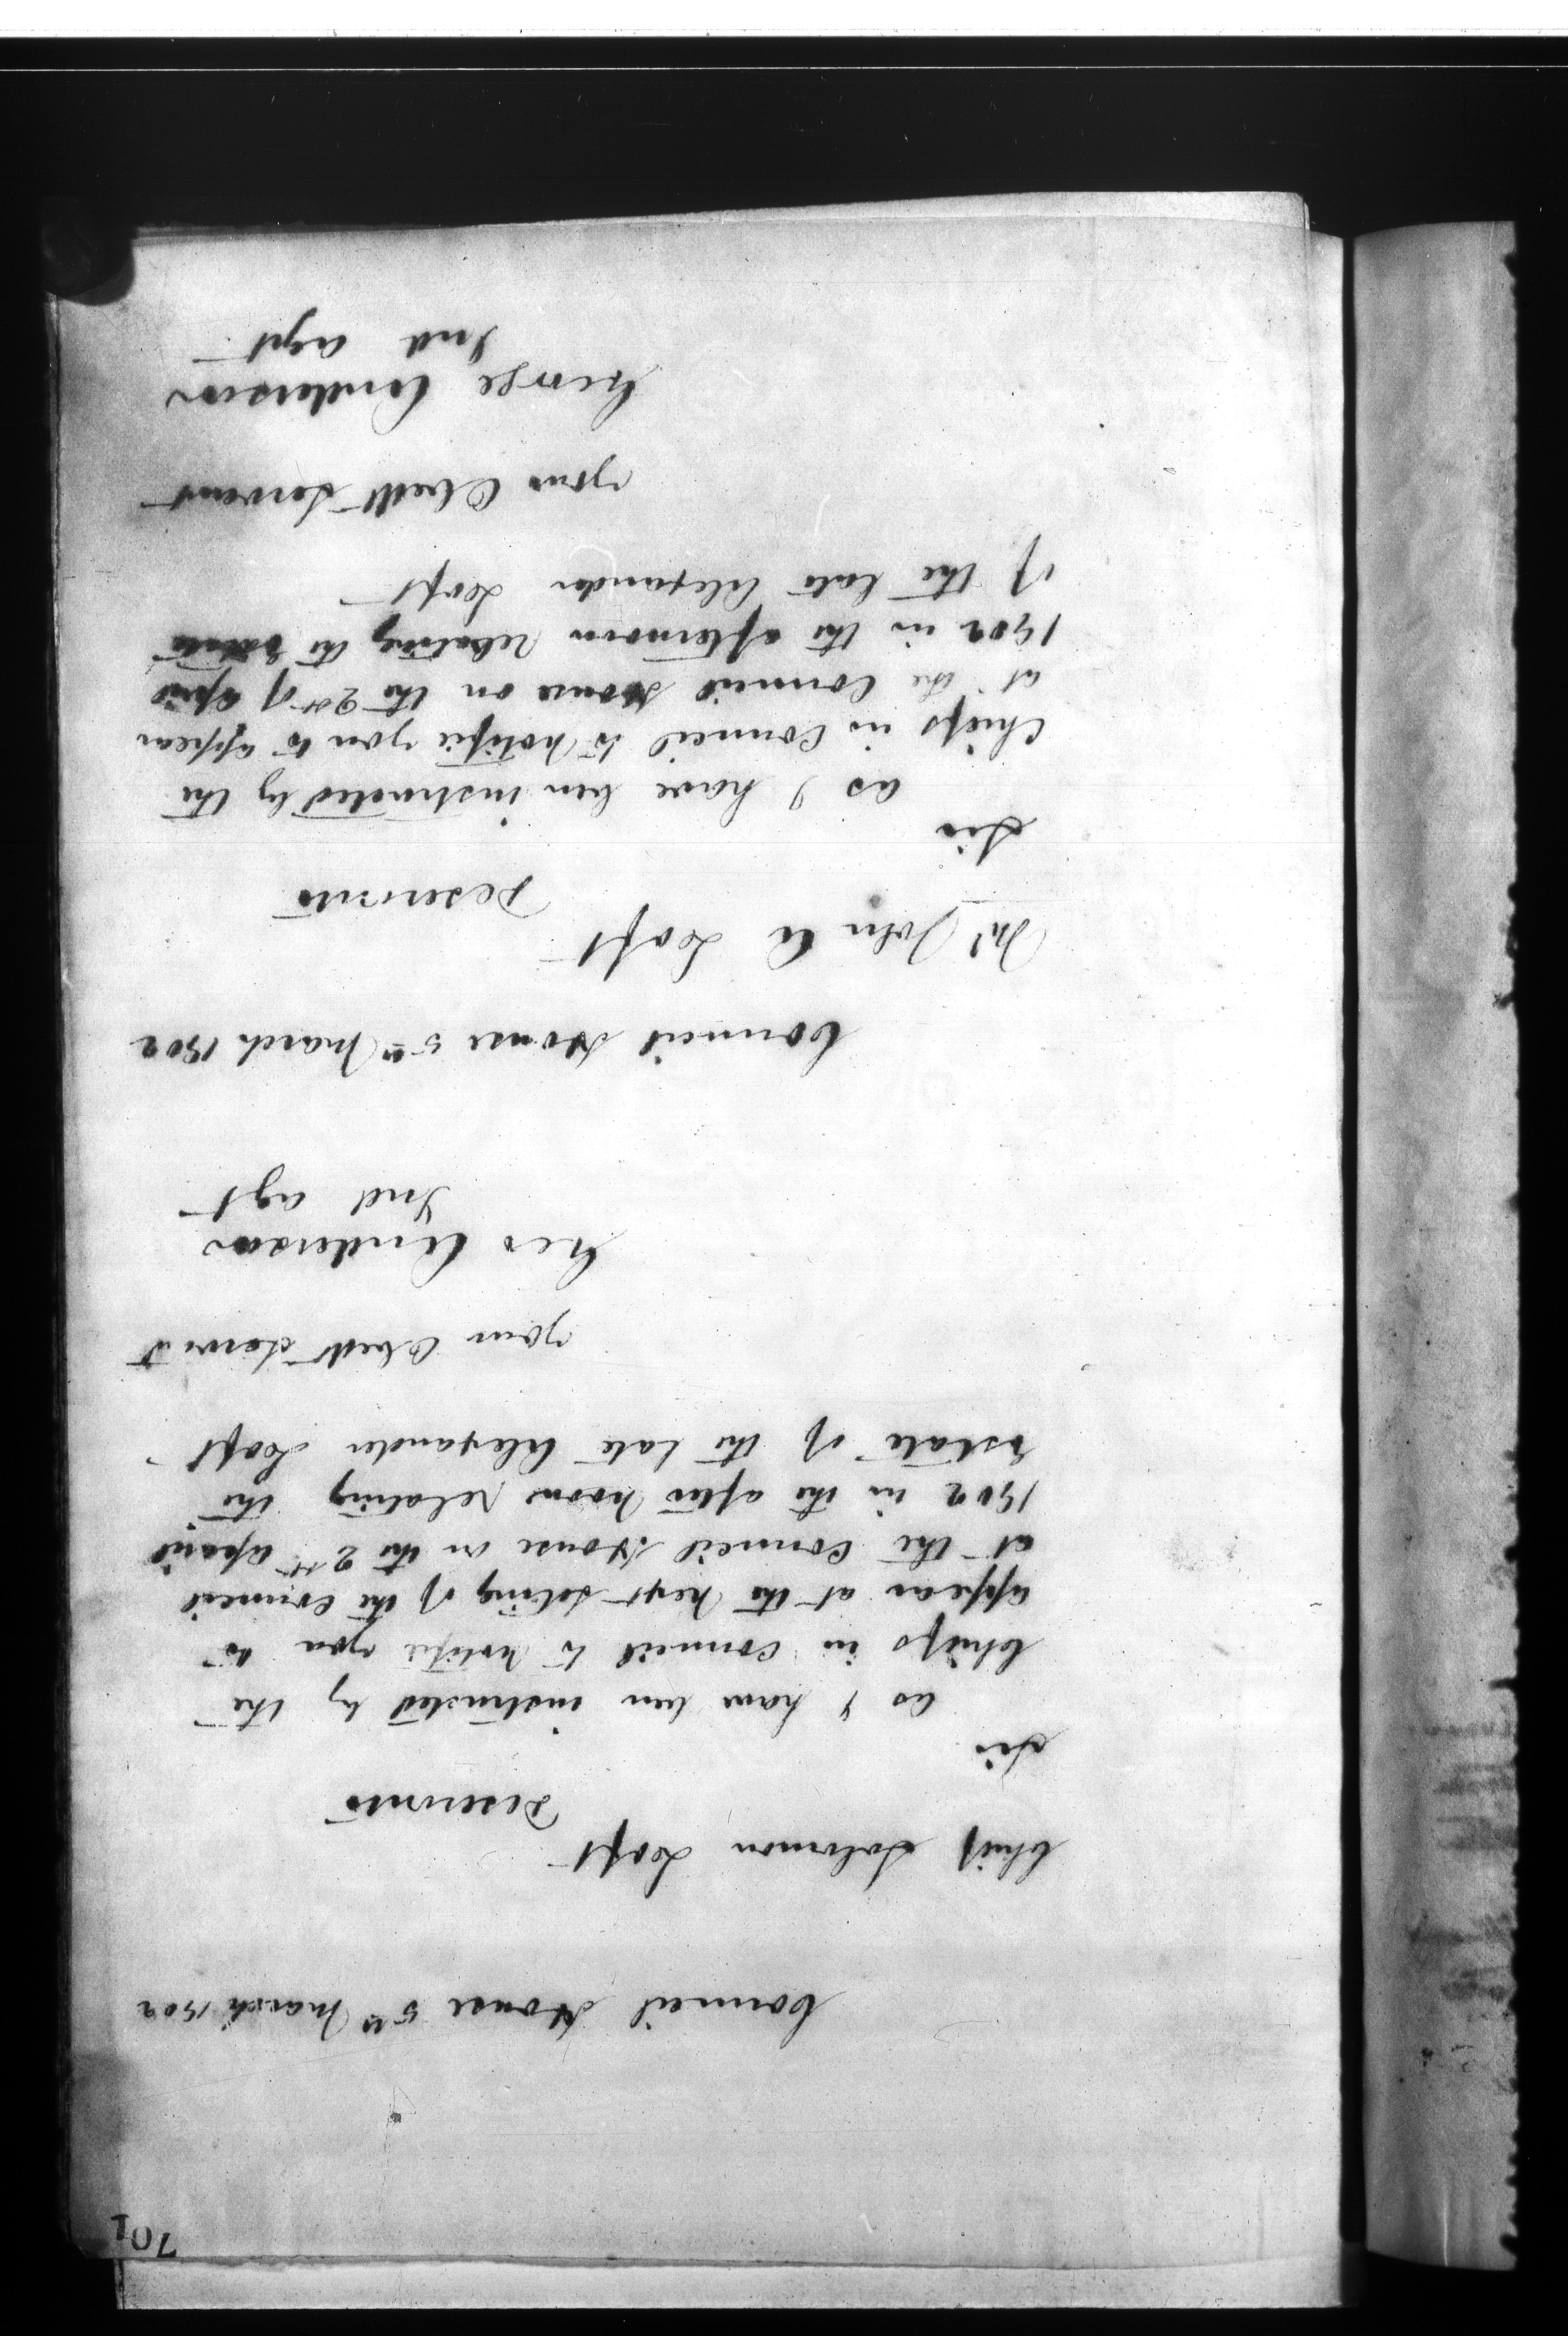 701
Council House 5th March 1902
Chief Solomon Loft
Deseronto
Sir
as I have ben instructed by the
Chiefs in Council to Notifie you to
appear at the Next Setting of the Council
at the Council House on the 2st Apail
1902 in the after Noon Relating the
Estate of the Late Alexander Loft
your Obedt
Geo Anderson
Ind agt
Council House 5th March 1902
Mr John A Loft
Deseronto
Sir
as I have ben instructed by the
Chiefs in Council to Notifie you to appear
at the Council House on the 2st of April
1902 in the afternoon Relating the Estate
of the Late Alexander Loft
your Obedt Servant
George Anderson
Ind agt